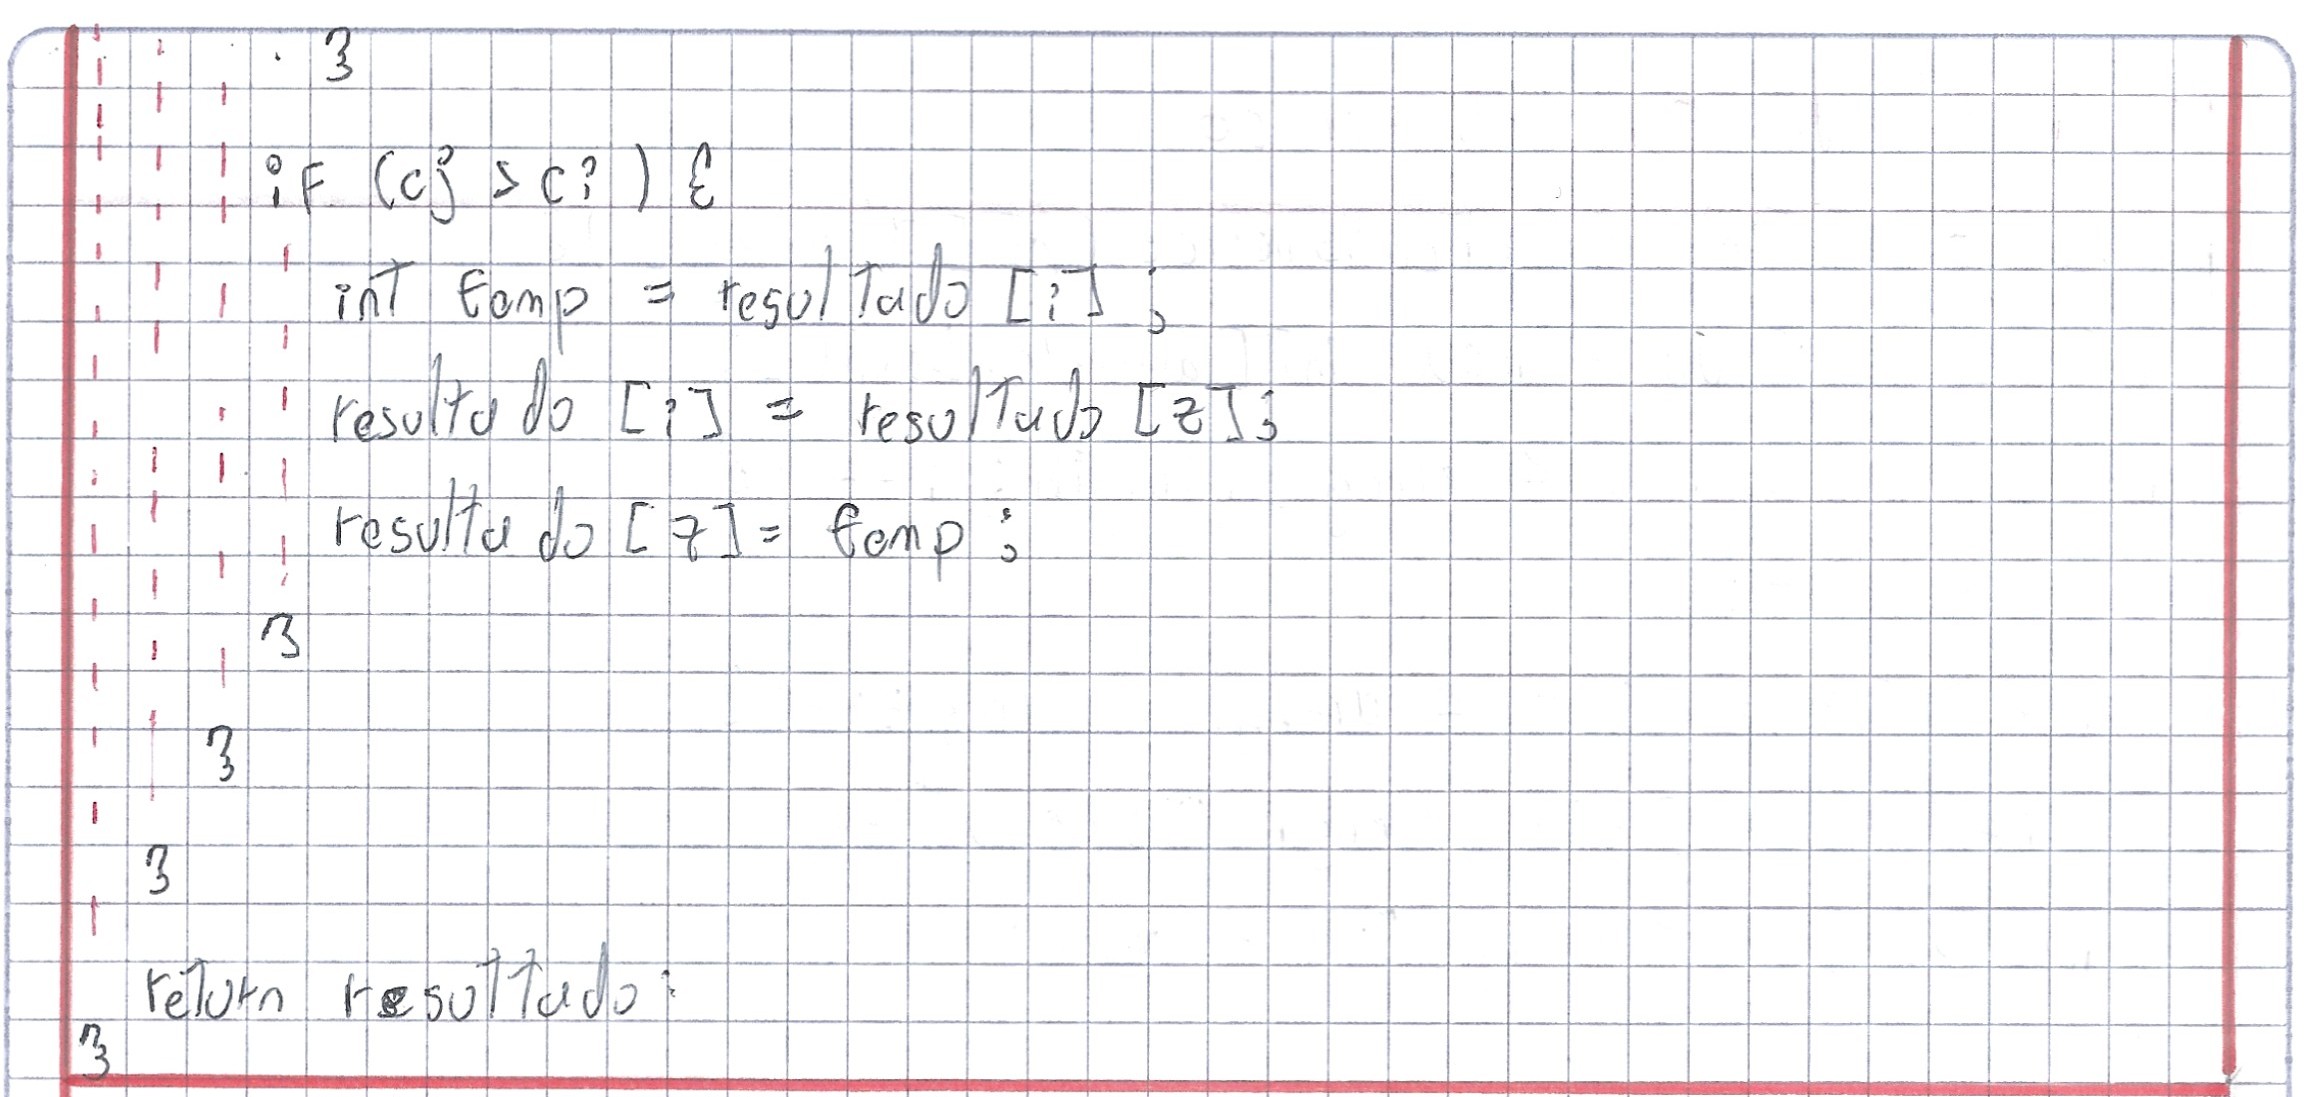 }
if (cj > ci) {
int temp = resultado [i] ;
resultado [i] = resultado [z];
resultado [z] = temp ;
}
}
}
return resultado;
}